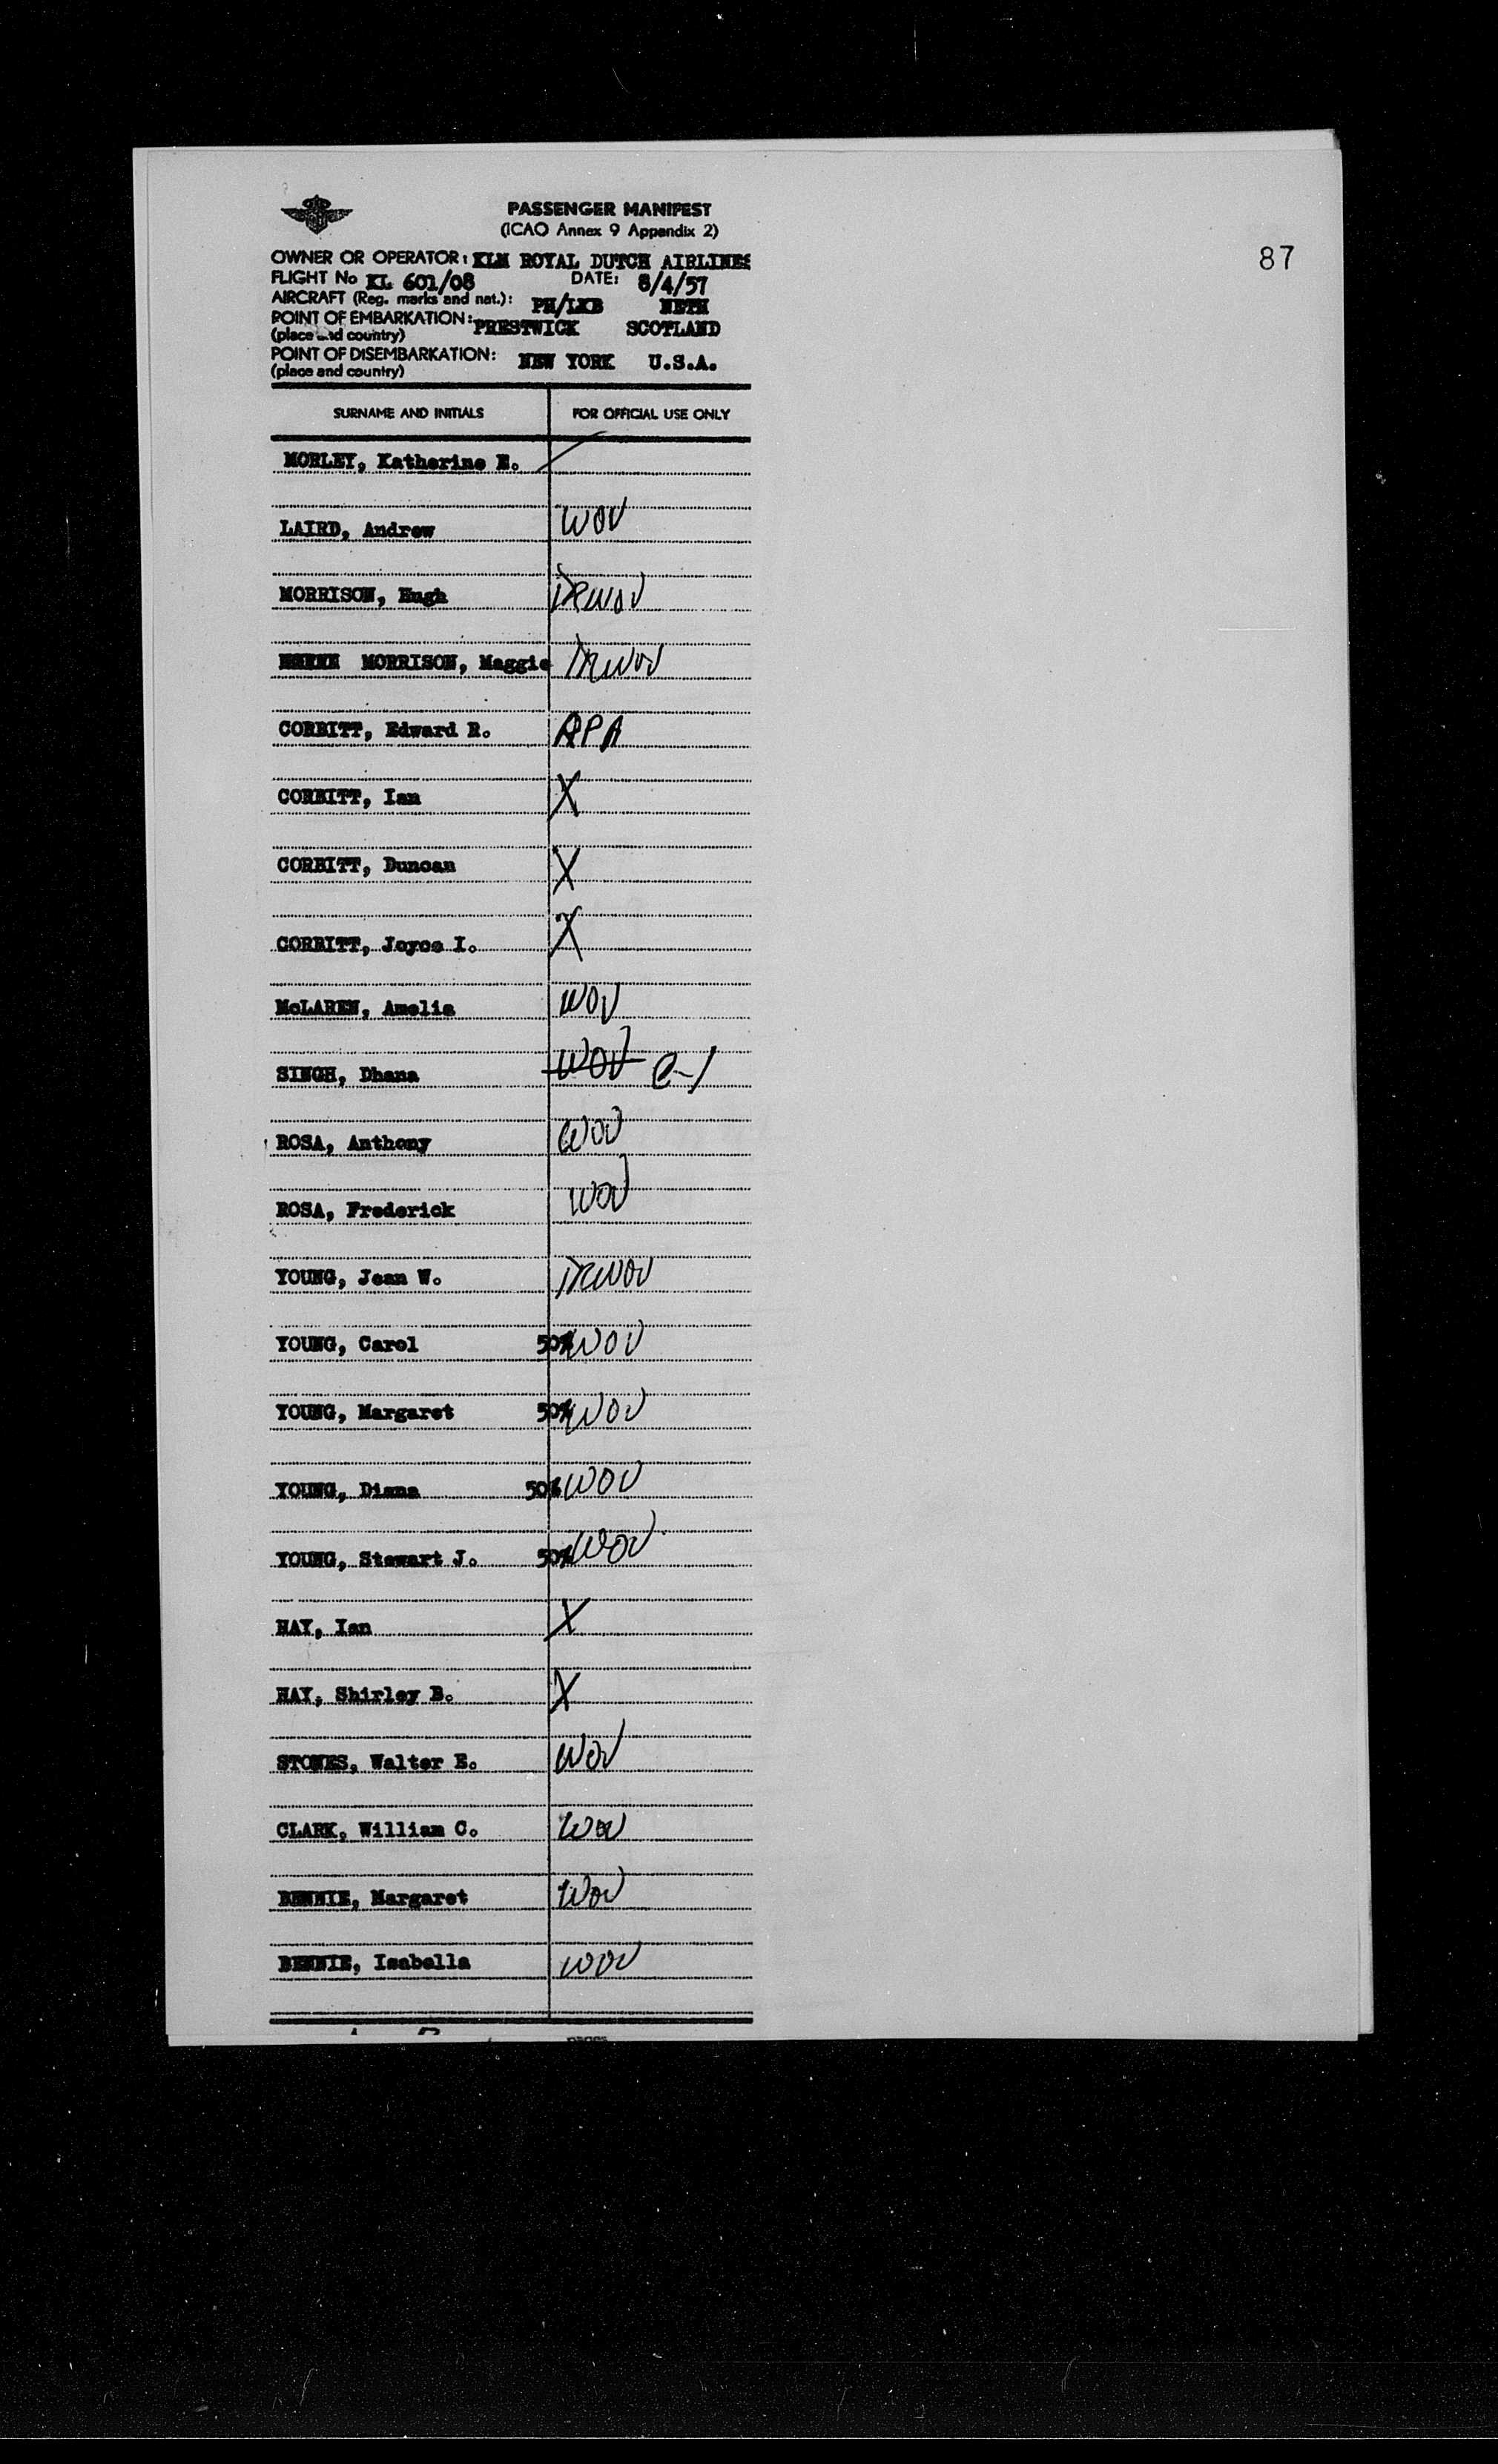 PASSENGER MANIFEST
(ICAO Annex 9 Appendix 2)
87
OWNER OR OPERATOR: KLM ROYAL DUTCH AIRLINES
FLIGHT No KL 601/08 DATE: 8/4/57
AIRCRAFT (Reg. marks and nat.): PH/LKB NETH
POINT OF EMBARKATION: PRESTWICK SCOTLAND
(place and country)
POINT OF DISEMBARKATION: NEW YORK U.S.A.
(place and country)
SURNAME AND INITIALS FOR OFFICIAL USE ONLY
MORLEY, Katherine E.
LAIRD, Andrew WOV
MORRISON, Hugh
MORRISON, Maggie
CORBITT, Edward R. RPA
CORBITT, Ian X
CORBITT, Duncan X
CORBITT, Joyce I. X
McLAREN, Amelia WOV
SINGH, Dhana WOV C-1
ROSA, Anthony WOV
ROSA, Frederick WOV
YOUNG, Jean W.
YOUNG, Carol 50% WOV
YOUNG, Margaret 50% WOV
YOUNG, Diana 50% WOV
YOUNG, Stewart J. 50% WOV
HAY, Ian X
HAY, Shirley B. X
STONES, Walter E. WOV
CLARK, William C. WOV
BENNIE, Margaret WOV
BENNIE, Isabella WOV